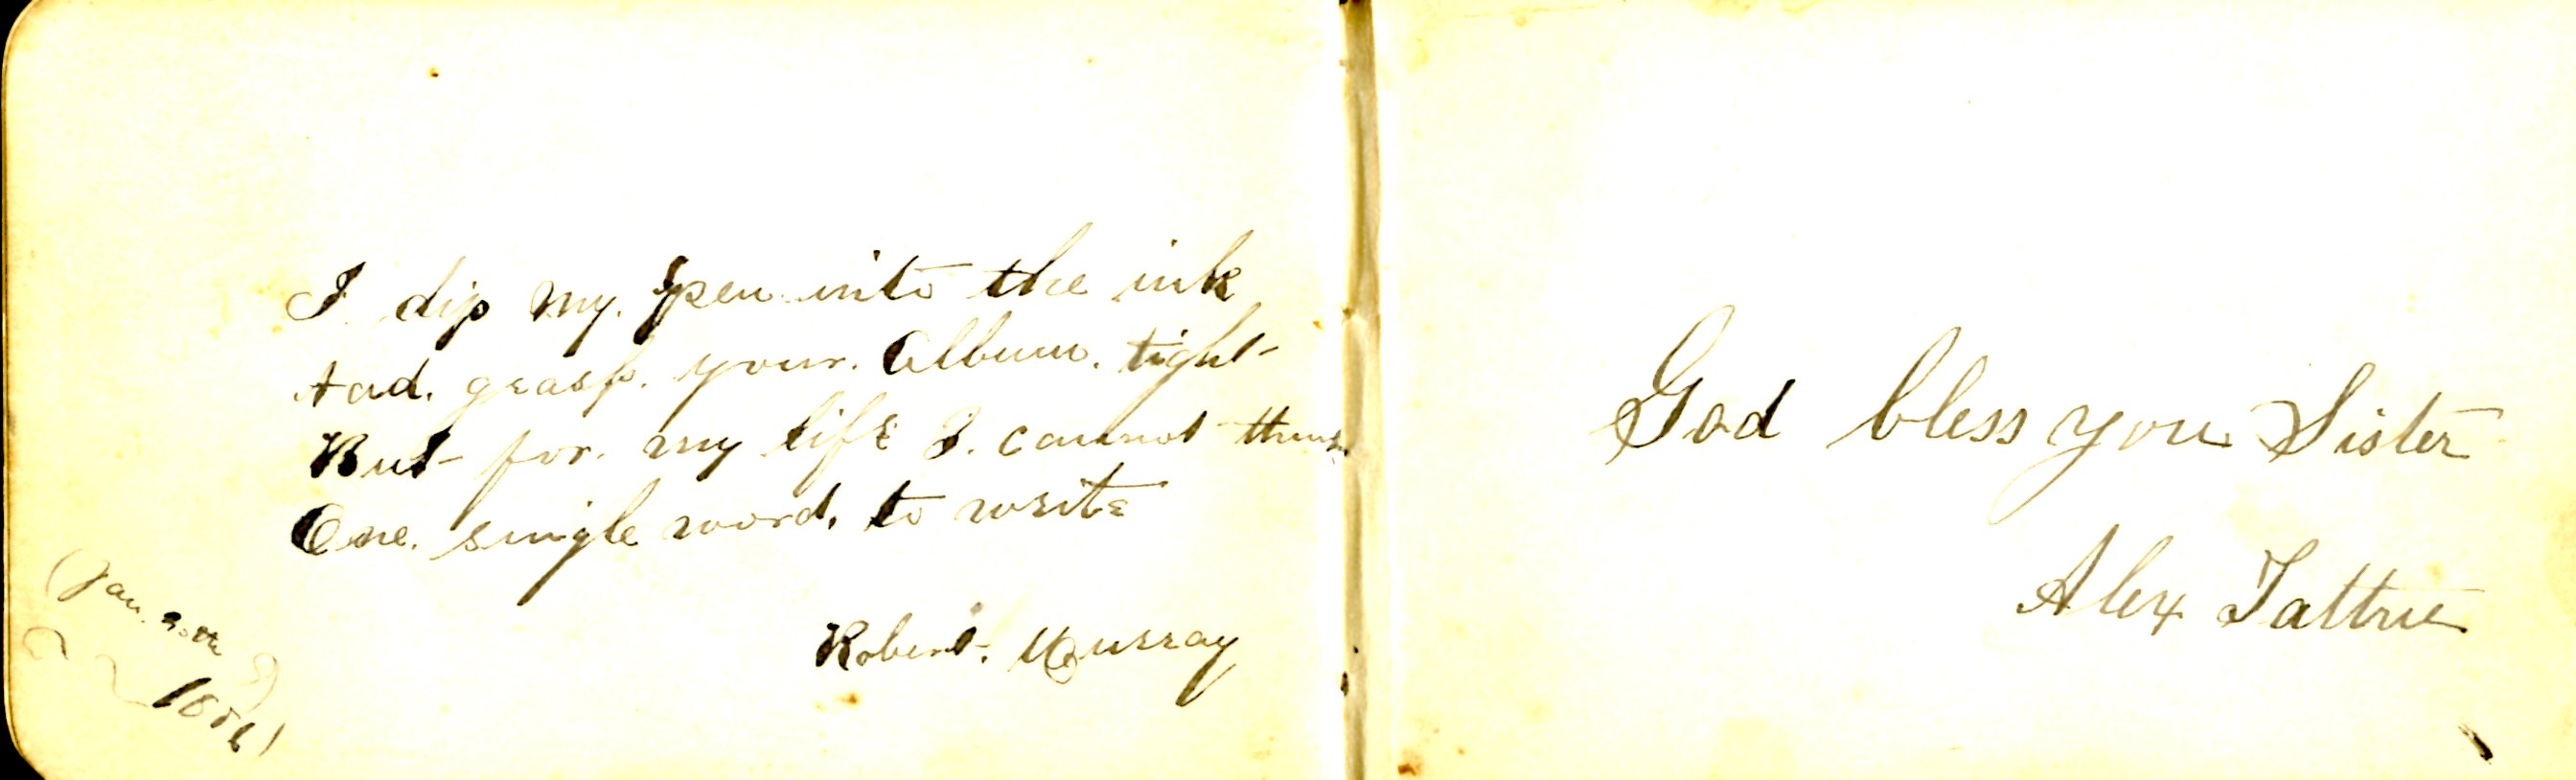 I dip my. pen into the ink
And. grasp. your. Album. tight
But for. my life I. cannot think
One. single word. to write
Robert. Murray
(Jan.
God bless you Sister
Alex Tattrie